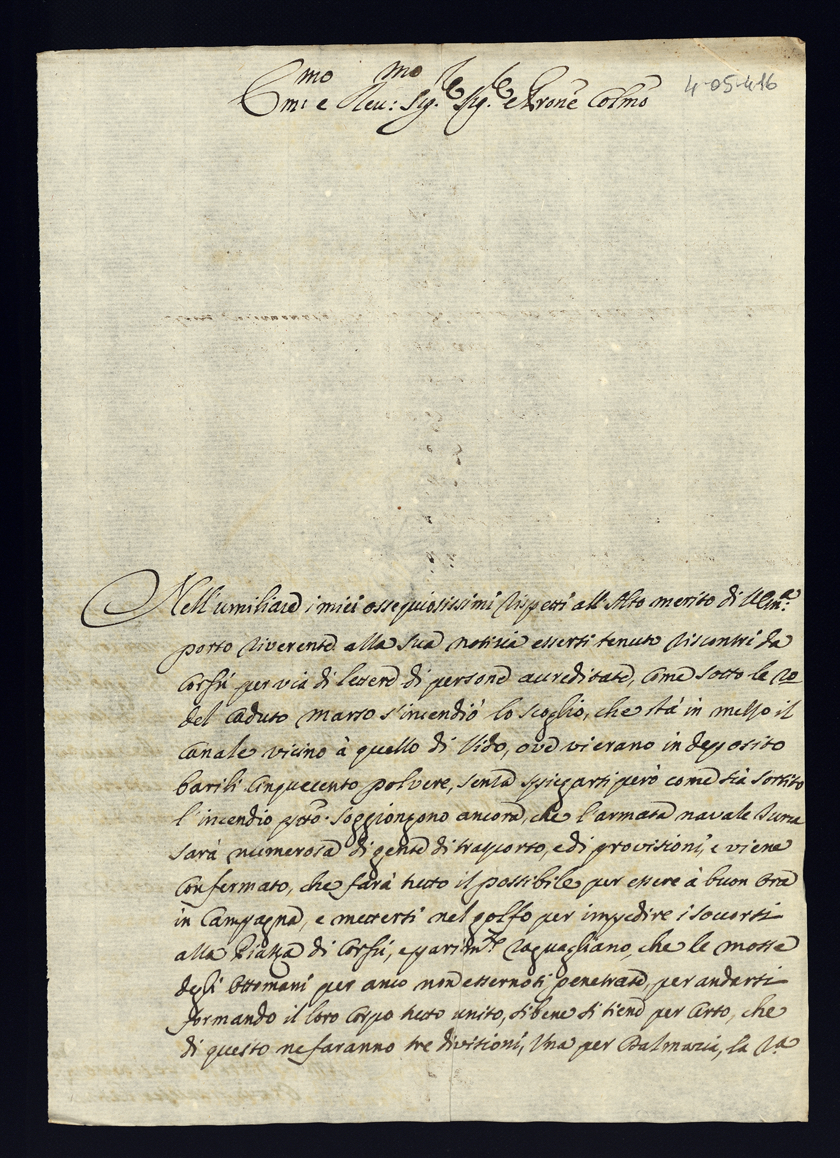 Em:mo e Reu:mo Sig.re Sig.re e Pron'e Colmo
4-05-416
Nell'umiliare i miei ossequiosissimi rispetti all'Alto merito di V.Em:a
porto riverente alla sua notitia essersi tenuto riscontri da
Corfù per via di lettere di persone accreditate, come sotto le 20
del caduto marzo s'incendiò lo scoglio, che stà in mezzo il
Canale vicino à quello di Vido, ove vi erano in deposito
barili Cinquecento polvere, senza spiegarsi però come sia sortito
l'incendio p.to. Soggiongono ancora, che l'armata navale Turca
sarà numerosa di gente di trasporto, e di provisioni, e viene
Confermato, che farà tutto il possibile per essere à buon ora
in Campagna, e mettersi nel golfo per impedire i soccorsi
alla Piazza di Corfù, e parim.te raguagliano, che le mosse
degl'Ottomani per anco non essernosi penetrate, per andarsi
formando il loro Corpo tutto unito, sibene si tiene per Certo, che
di questo ne faranno tre divisioni, Una per Dalmazia, la 2.a